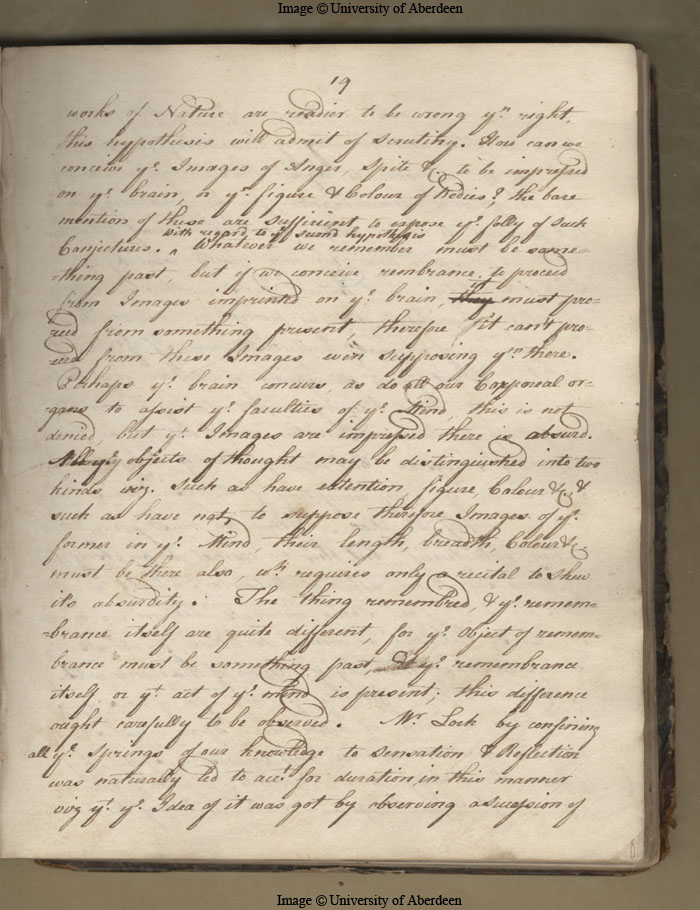 Image © University of Aberdeen
19
works of Nature are readier to be wrong yn. right,
this hypothesis will admit of scrutiny. How can we
conceive ye. Images of Anger, Spite &c. to be impressed
on ye. brain, or ye. figure & Colour of Bodies? the bare
mention of these are sufficient to expose ye. folly of such
with regard to ye. second hypothesis
Conjectures. ^ Whatever we remember must be some=
=thing past but if we conceive rembrance to proceed
from Images imprinted on ye. brain, they it must pro=
ceed from something present, therefore it can't pro=
ceed from these Images even supposing ym there.
Perhaps ye. brain concurs, as do all our Corporeal or=
gans to assist ye. faculties of ye. Mind, this is not
denied, but yt. Images are impressed there is absurd.
All ye. objects of thought may be distinguished into two
kinds viz. Such as have extention figure Colour &c. &
such as have not, to suppose therefore Images of ye.
former in ye. Mind, their length, breadth, Colour &c
must be there also, wh. requires only a recital to shew
its absurdity. The thing remembred, & ye. remem=
=brance itself are quite different, for ye. Object of remem=
brance must be something past, & ye. remembrance
itself or yt. act of ye. mind is present; this difference
ought carefully to be observed. Mr. Lock by confining
all ye. Springs of our knowledge to Sensation & Reflection
was naturally led to acct. for duration in this manner
viz yt. ye. Idea of it was got by observing a Sucession of
Image © University of Aberdeen